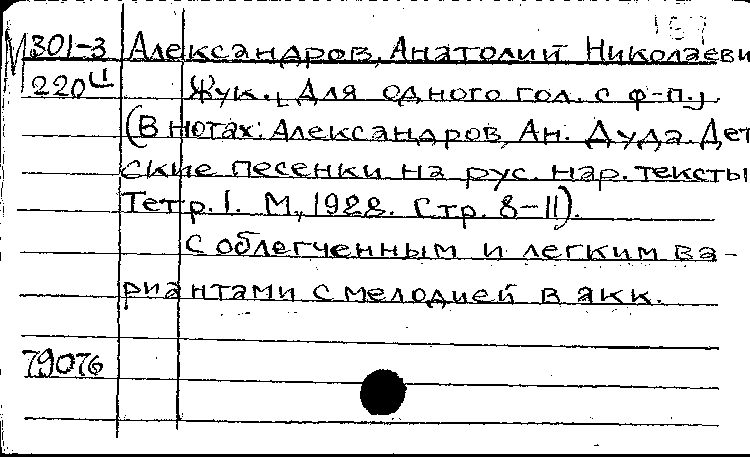 М 301-3 Александров, Анатолий Николаеви
220 Жук. [Для одного гол. с ф-п.]
(В нотах: Александров, Ан. Дуда. Дет
ские песенки на рус. нар. тексты
Тетр. 1. М., 1928. Стр. 8-11).
С облегченным и легким ва-
риантами с мелодией в акк.
79076